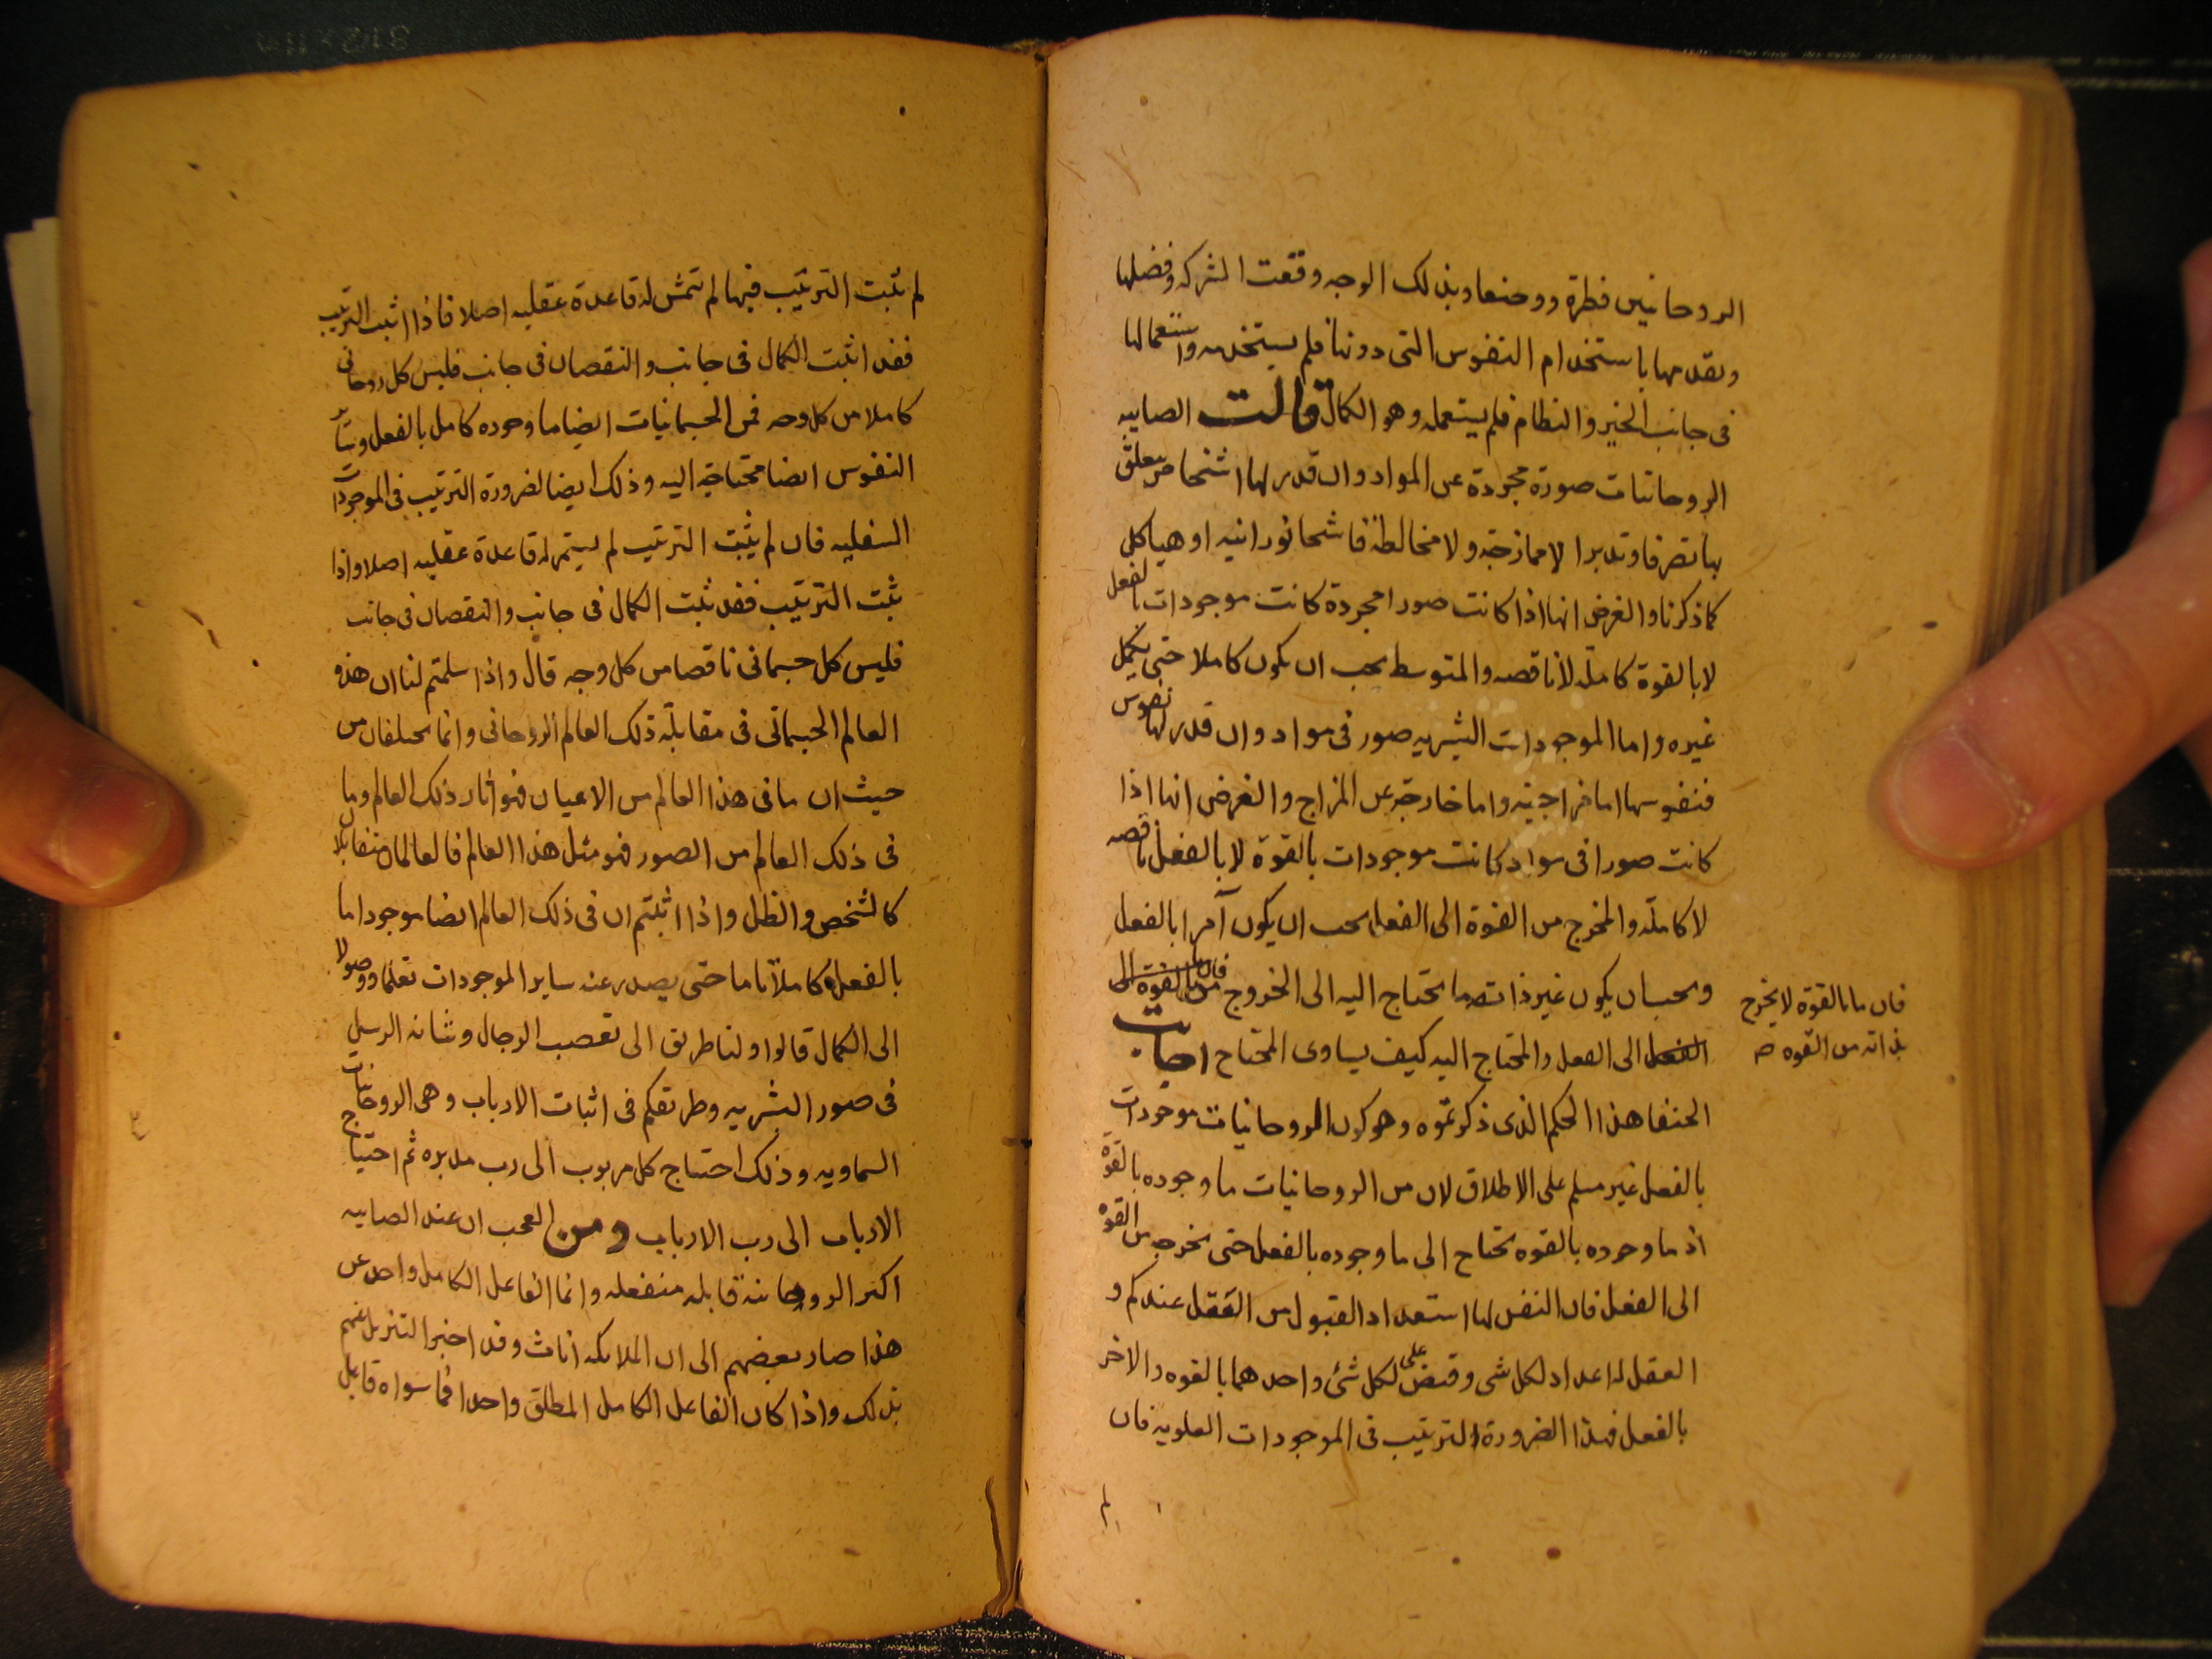 الروحانيين فطرة ووضعا وبذلك الوجه وقعت الشركة وفضلها
وتقدمها باستخدام النفوس التى دونها فلم يستخدمه واستعمالها
فى جانب الخير والنظام فلم يستعمله وهو الكمال قالت الصابيه
الروحانيات صورة مجردة عن المواد وان قدر لها اشخاص يتعلق
بها تصرفا وتدبيرا لا ممازجة ولا مخالطة فاشخاصا نورانيه او هياكل
كما ذكرنا والغرض انها اذا كانت صورا مجردة كانت موجودات بالفعل
لا بالقوة كاملة لا ناقصه والمتوسط يجب ان يكون كاملا حتى يكمل
غيره واما الموجودات البشريه صور فى مواد وان قدر لها نفوس
فنفوسها اما مزاجيه واما خارجة عن المزاج والغرض انها اذا
كانت صورا فى مواد كانت موجودات بالقوة لا بالفعل ناقصه
لا كاملة والمخرج من القوة الى الفعل يجب ان يكون آمرا بالفعل
ويجب ان يكون غير ذات ما يحتاج اليه الى الخروج من القوة الى
فان ما بالقوة لا يخرج
بذاته من القوه صح
الفعل الى الفعل والمحتاج اليه كيف يساوى المحتاج اجابت
الحنفا هذا الحكم الذى ذكرتموه وهو كون الروحانيات موجودات
بالفعل غير مسلم على الاطلاق لان من الروحانيات ما وجوده بالقوة
اذ ما وجوده بالقوه يحتاج الى ما وجوده بالفعل حتى يخرجه من القوة
الى الفعل فان النفس لها استعداد القبول من العقل عندكم و
العقل له اعداد لكل شى وقيض على لكل شئ واحدهما بالقوه والاخر
بالفعل فهذا الضرورة الترتيب فى الموجودات العلويه فان
لم
لم يثبت الترتيب فيها لم تتمش له قاعدة عقليه اصلا فاذا اثبت الترتيب
فقد اثبت الكمال فى جانب والنقصان فى جانب فليس كل روحانى
كاملا من كل وجه فمن الجسمانيات ايضا ما وجوده كامل بالفعل وسائر
النفوس ايضا محتاجة اليه وذلك ايضا لضرورة الترتيب فى الموجودات
السفليه فان لم يثبت الترتيب لم يستمر له قاعدة عقليه اصلا واذا
ثبت الترتيب فقد ثبت الكمال فى جانب والنقصان فى جانب
فليس كل جسمانى ناقصا من كل وجه قال واذا سلمتم لنا ان هذه
العالم الجسمانى فى مقابلة ذلك العالم الروحانى وانما يختلفان من
حيث ان ما فى هذا العالم من الاعيان فهو اثار ذلك العالم وما
فى ذلك العالم من الصور فهو مثل هذا العالم فالعالمان متقابلان
كالشخص والظل واذا اثبتم ان فى ذلك العالم ايضا موجودا ما
بالفعل كاملا تاما حتى يصدر عنه ساير الموجودات تعلما ووصولا
الى الكمال قالوا ولنا طريق الى تعصب الرجال وشانه الرسل
فى صور البشريه وطريقكم فى اثبات الارباب وهى الروحانيات
السماويه وذلك احتياج كل مربوب الى رب مدبره ثم احتياج
الارباب الى رب الارباب ومن العجب ان عند الصابيه
اكثر الروحانية قابله منفعله وانما الفاعل الكامل واحد عن
هذا صار بعضهم الى ان الملائكه اناث وقد اخبر التنزيل عنهم
بذلك واذا كان الفاعل الكامل المطلق واحدا فما سواه قابل